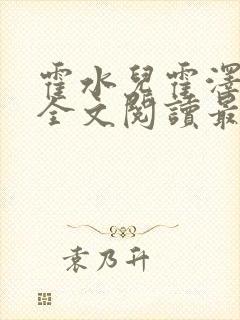 霍水兒霍澤
全文閱讀最
袁乃升